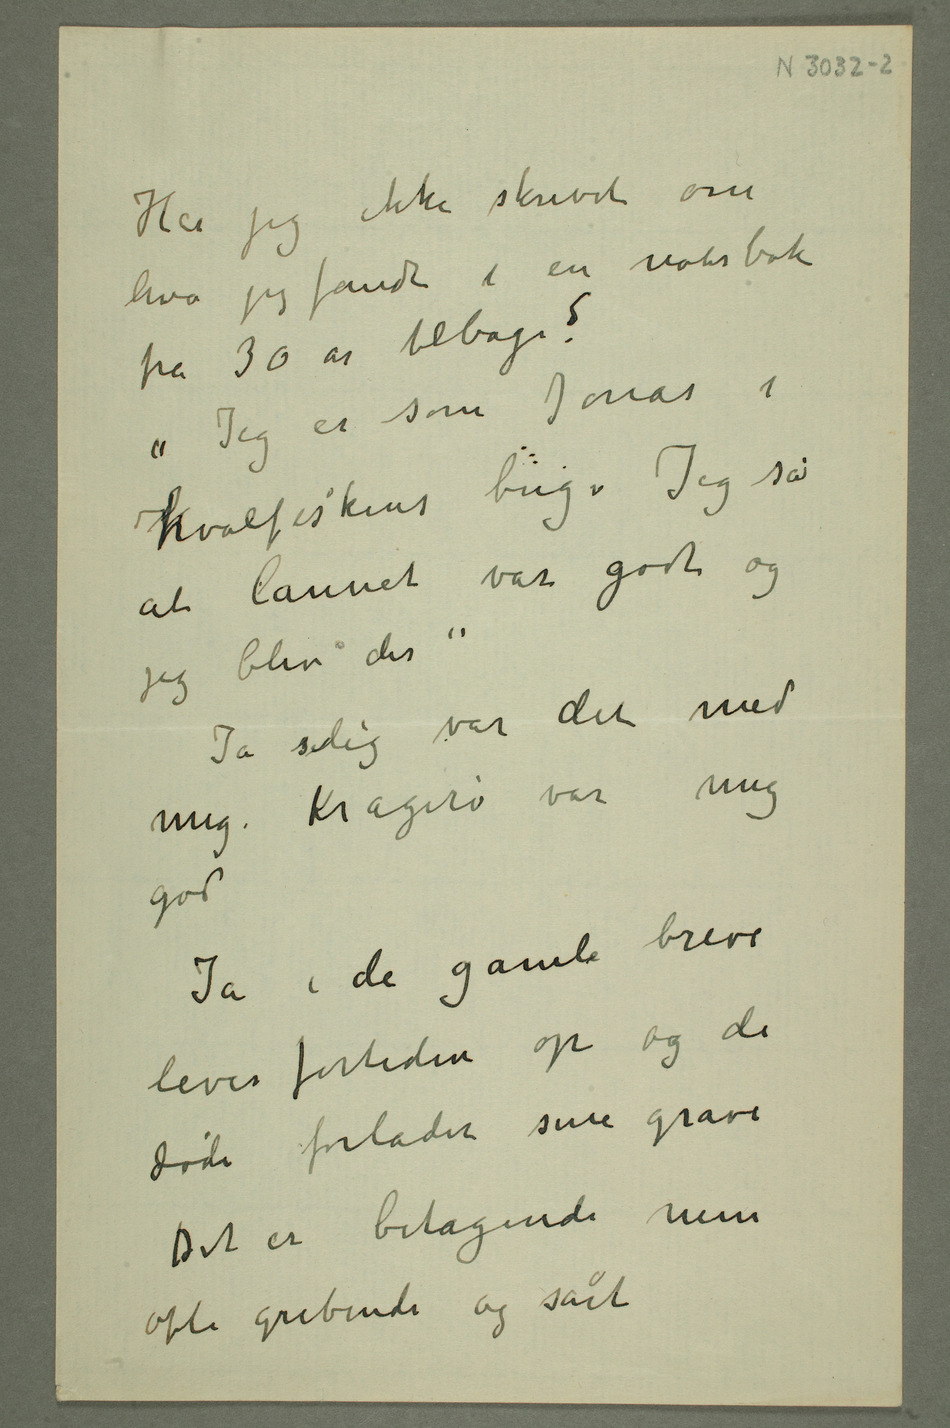 N 3032-2
Har jeg ikke skrevet om
hva jeg fandt i en notisbok
fra 30 år tilbage?
„Jeg er som Jonas i
hvalfiskens bug. Jeg så
at lannet var godt og
jeg blev der"
Ja slig var det med
mig. Kragerø var mig
god
Ja i de gamle breve
lever fortiden op og de
døde forlader sine grave
Det er betagende men
ofte gribende og sårt